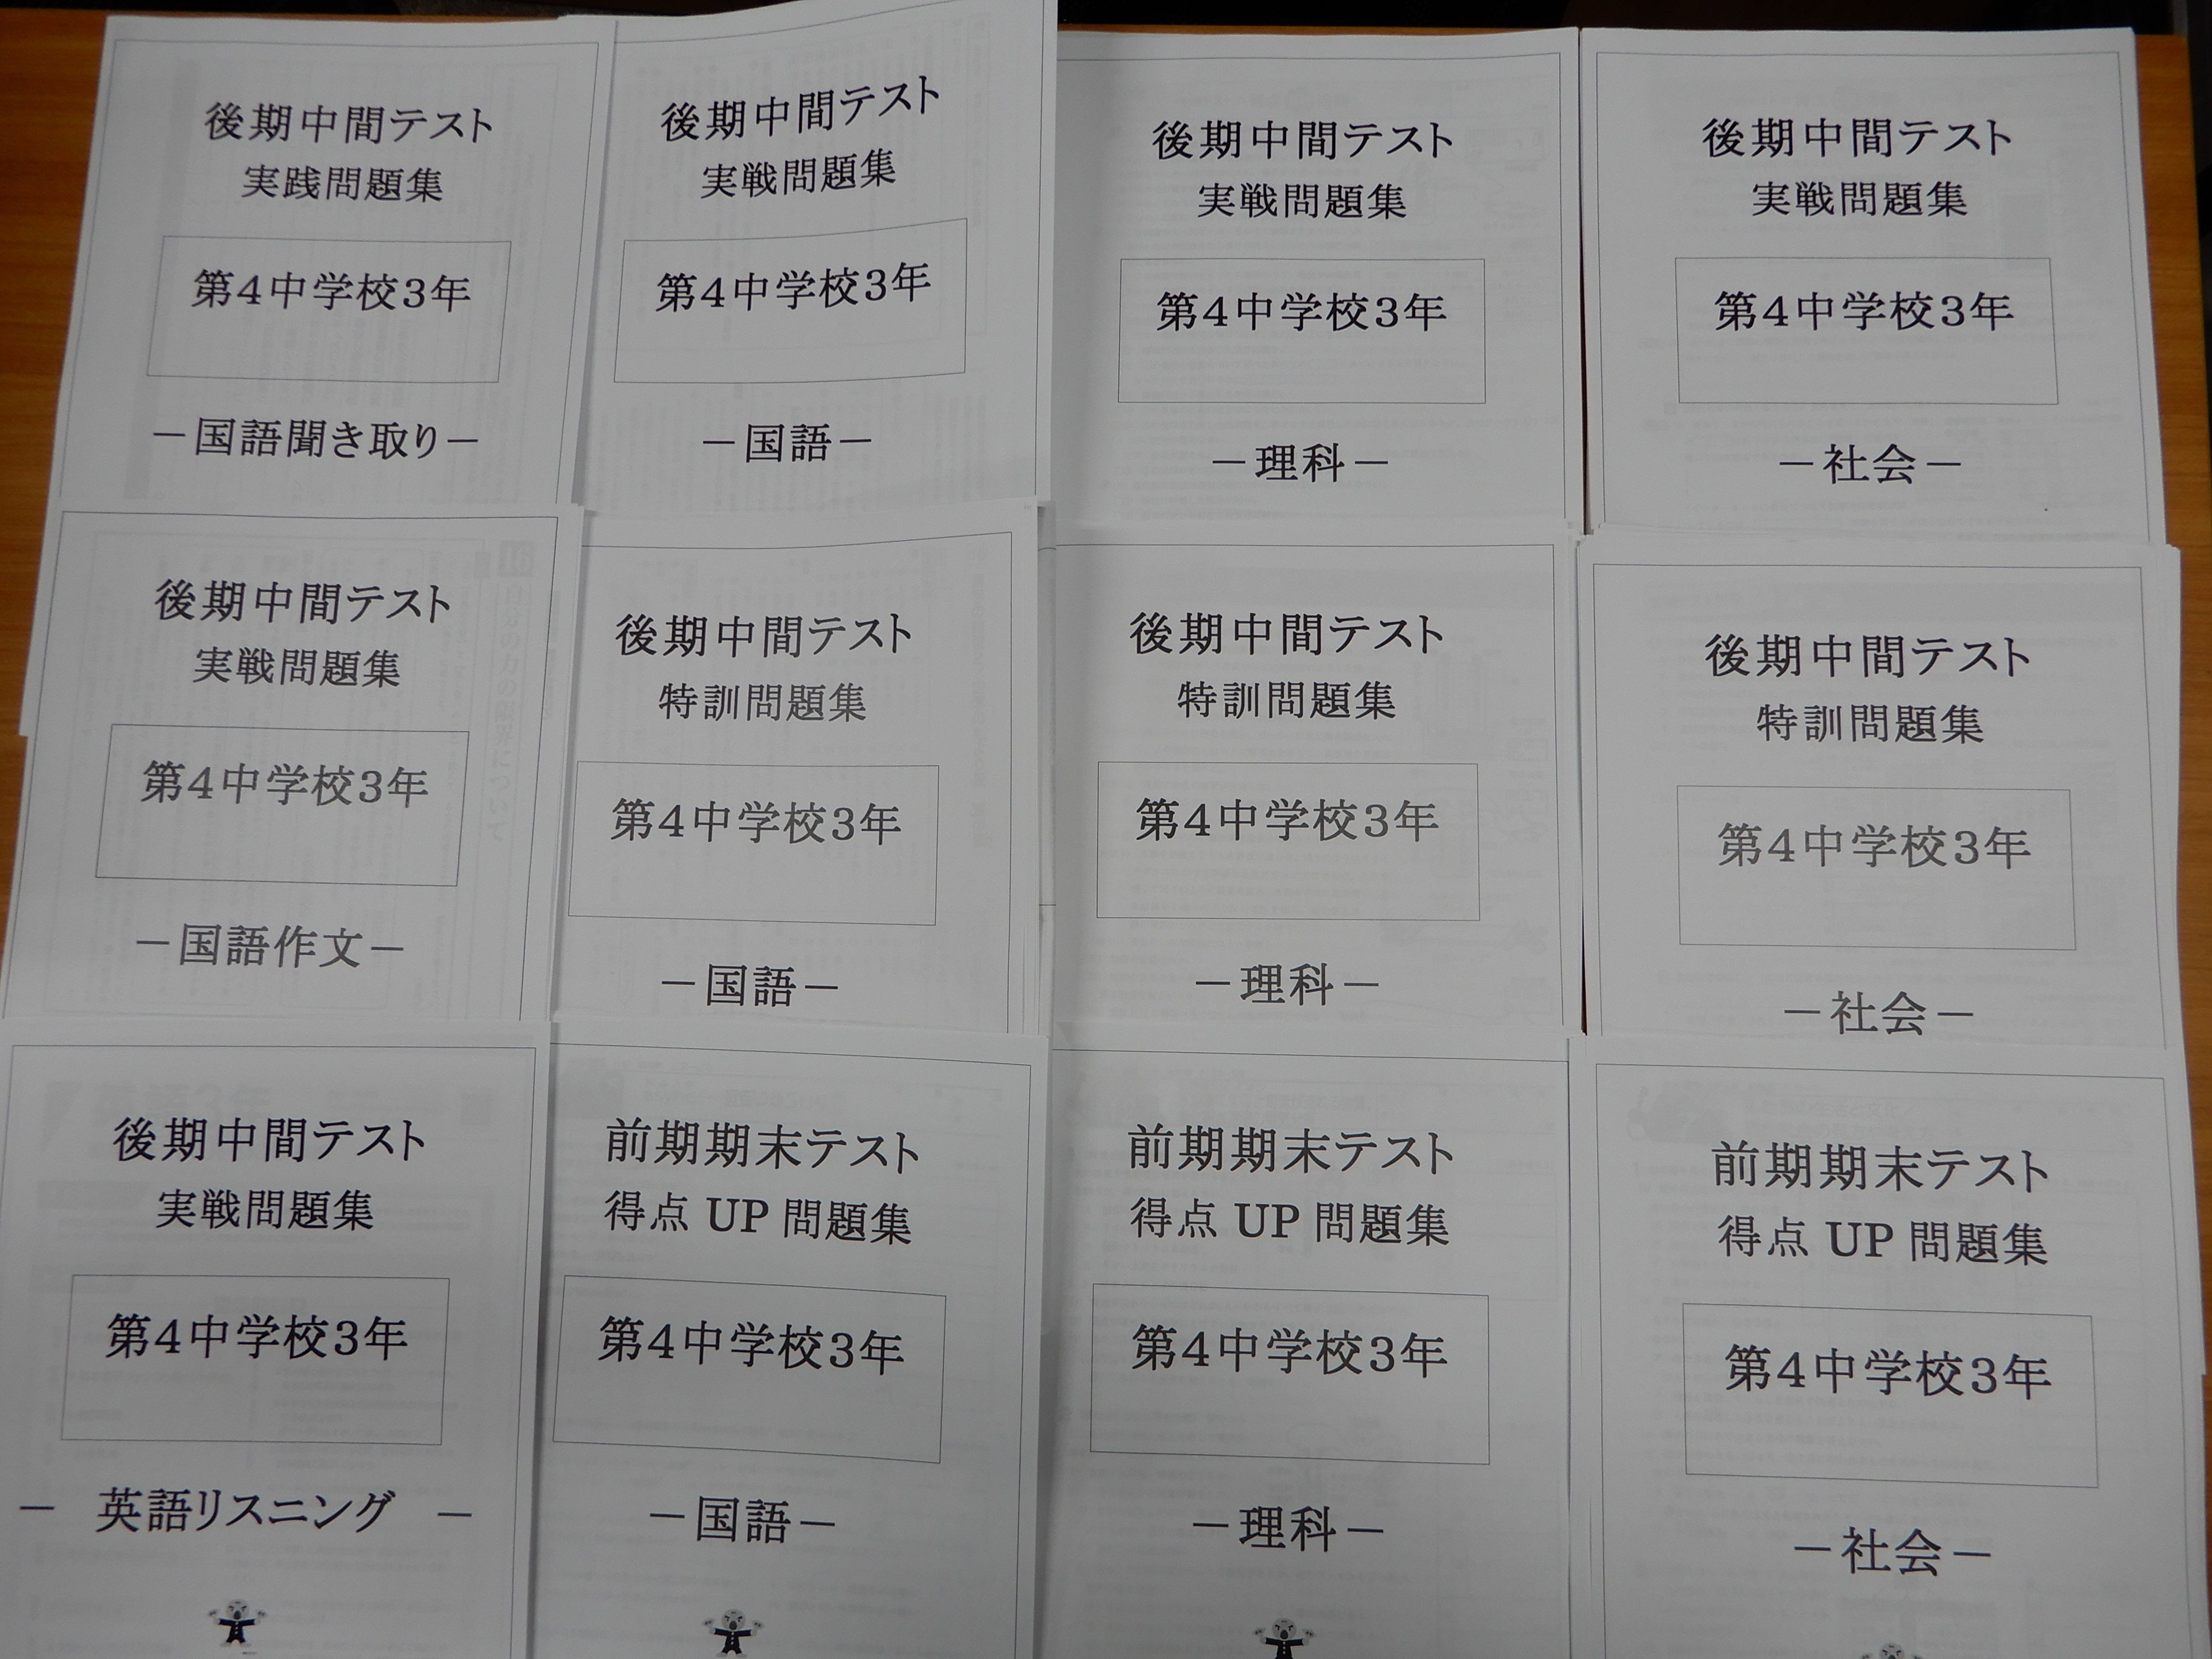 後期中間テスト
実践問題集
第4中学校3年
－国語聞き取り－
後期中間テスト
実戦問題集
第4中学校3年
－国語－
後期中間テスト
実戦問題集
第4中学校3年
－理科－
後期中間テスト
実戦問題集
第4中学校3年
－社会－
後期中間テスト
実戦問題集
第4中学校3年
－国語作文－
後期中間テスト
特訓問題集
第4中学校3年
－国語－
後期中間テスト
特訓問題集
第4中学校3年
－理科－
後期中間テスト
特訓問題集
第4中学校3年
－社会－
後期中間テスト
実戦問題集
第4中学校3年
－ 英語リスニング －
前期期末テスト
得点 UP 問題集
第4中学校3年
－国語－
前期期末テスト
得点 UP 問題集
第4中学校3年
－理科－
前期期末テスト
得点 UP 問題集
第4中学校3年
－社会－